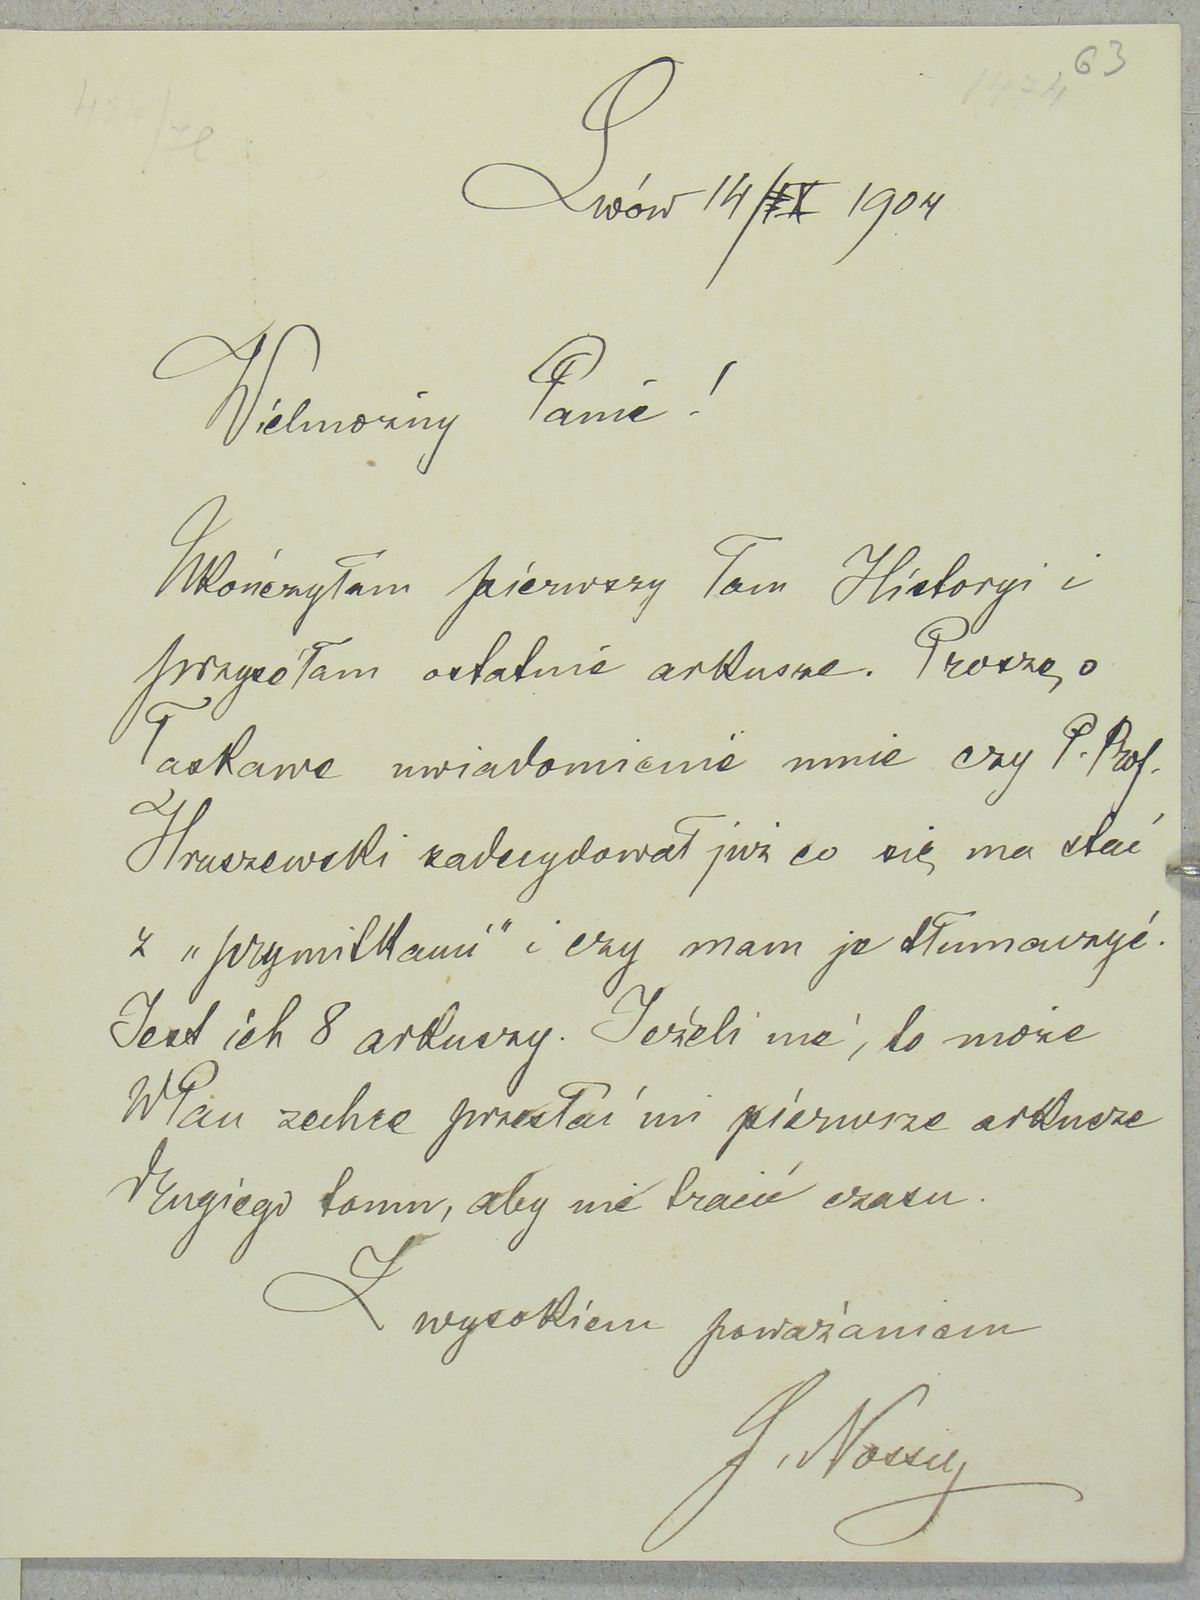 63
Lwów 14/IX 1904
Wielmożny Panie!
Ukończyłam pierwszy tom Historyi i
przysółam ostatnie arkusze. Proszę o
łaskawe uwiadomienie mnie czy P. Prof.
Hruszewski zadecydował już co się ma stać
z „prymitkami" i czy mam je tłumaczyć.
Jest ich 8 arkuszy. Jeżeli nie, to może
WPan zechce przesłać mi pierwsze arkusze
drugiego tomu, aby nie tracić czasu.
Z wysokiem poważaniem
Nossig